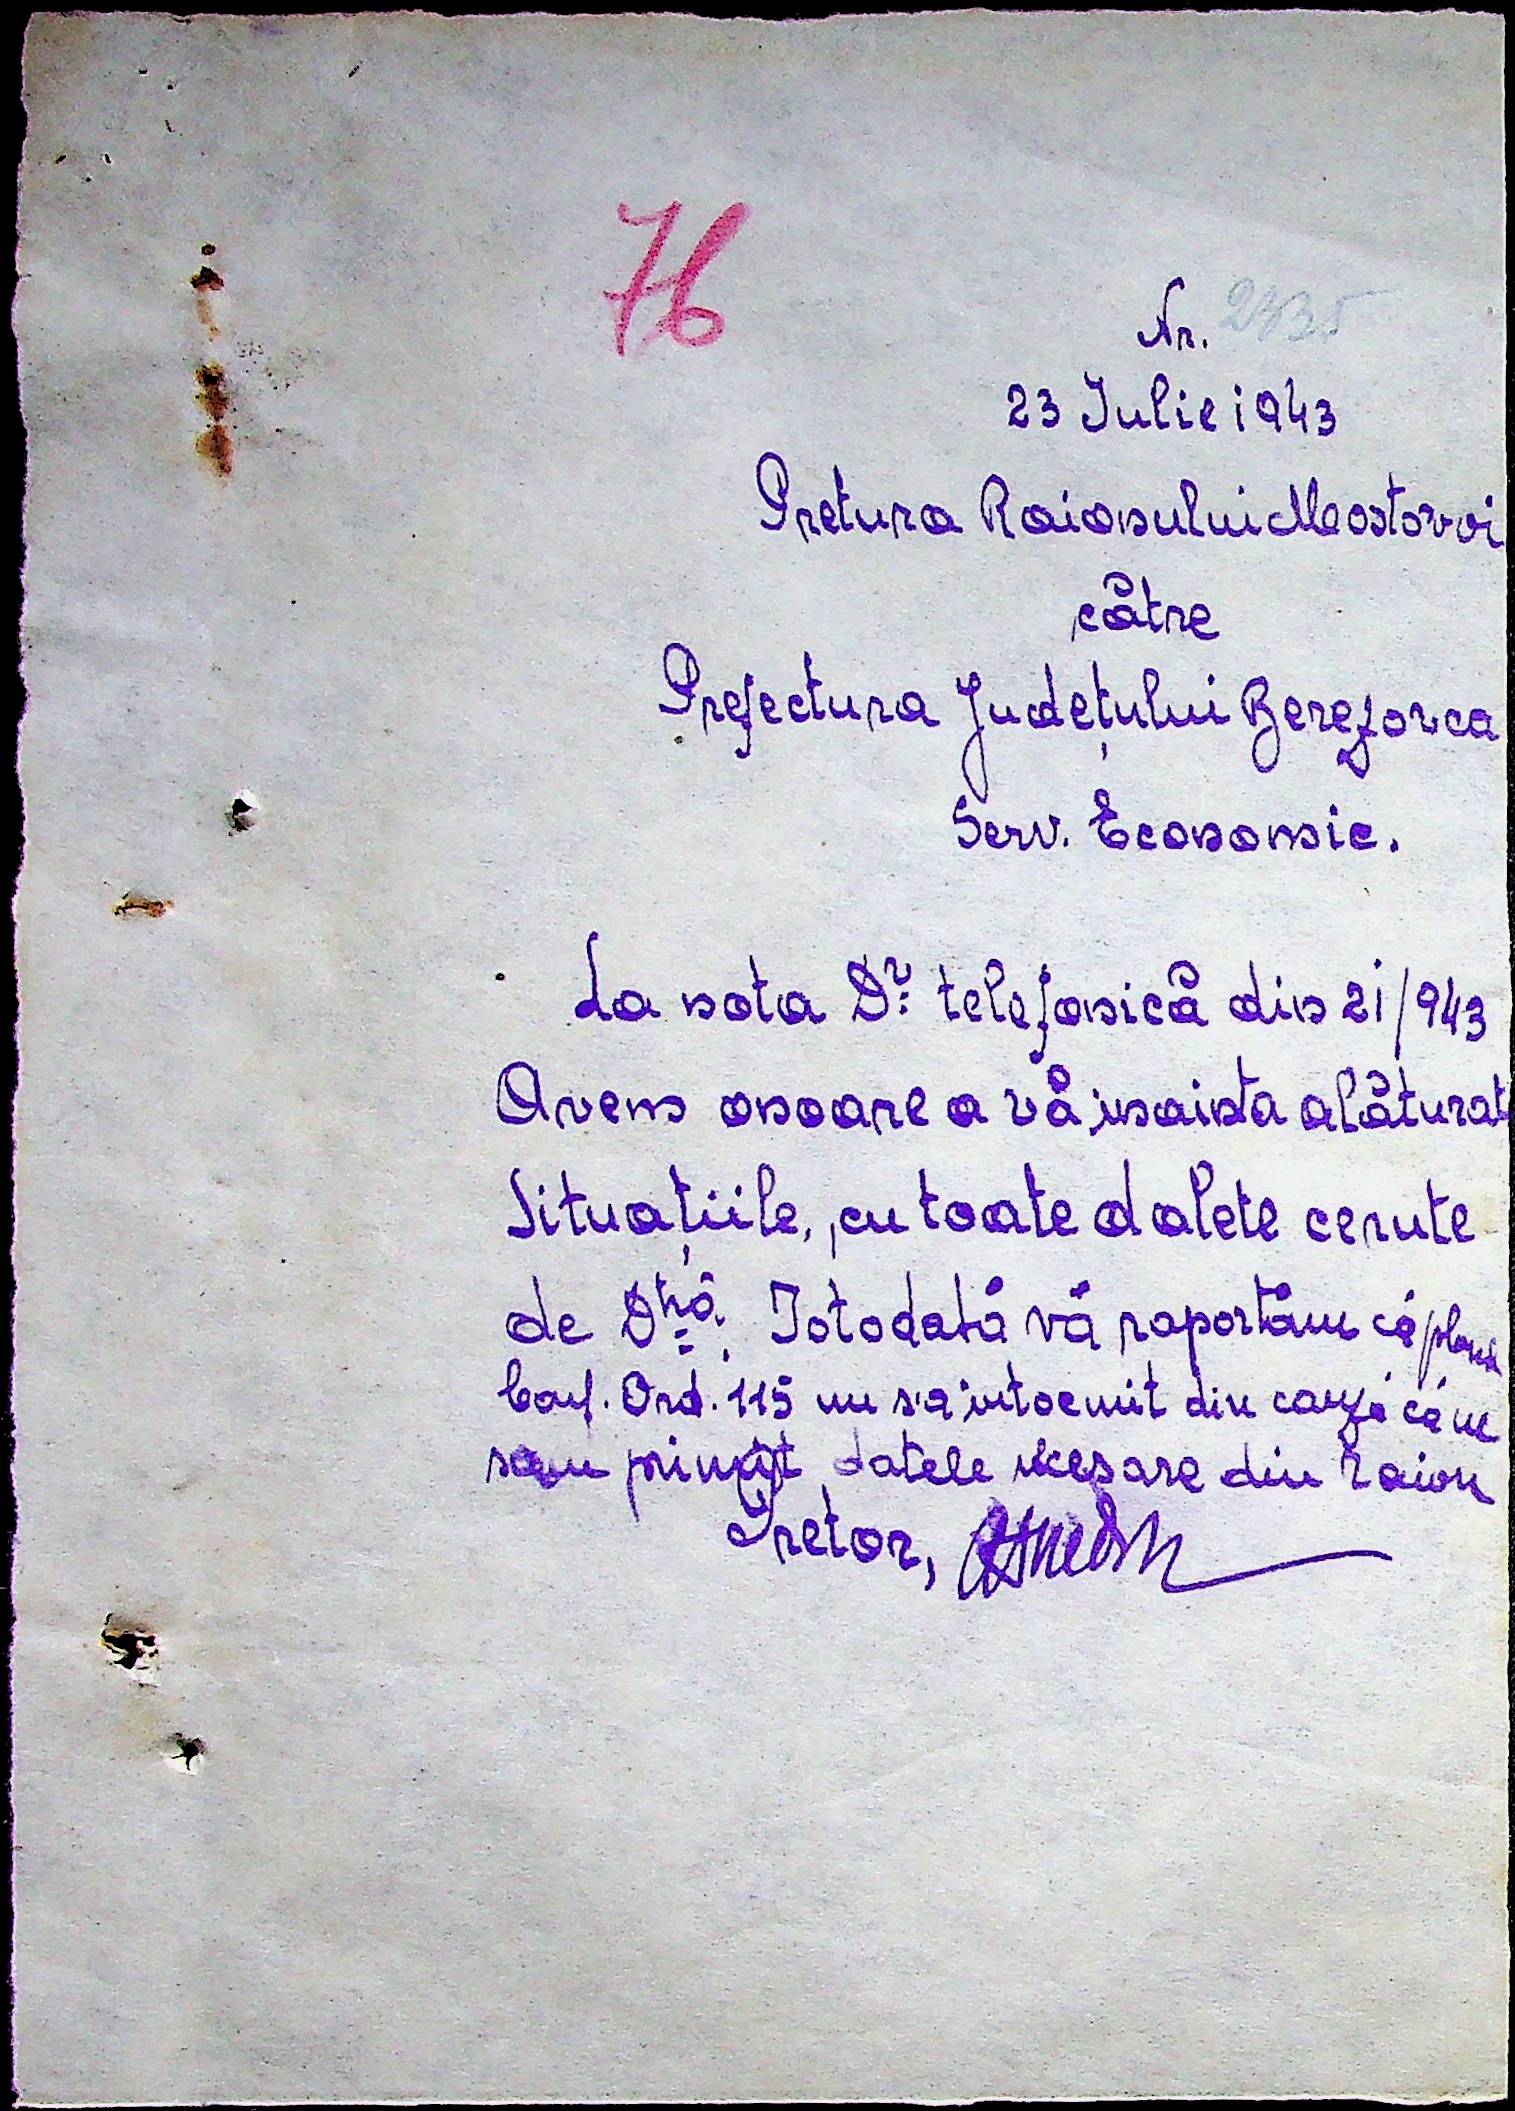 76
Nr. 2335
23 Iulie 1943
Pretura Raionului Mostovoi
către
Prefectura Județului Berezovca
Serv. Economic.
La nota Dv: telefonică din 21/943
Avem onoare a vă înainta alăturat
Situațiile, cu toate dalete cerute
de Dtră. Totodată vă raportăm că planul
Conf. Ord. 115 nu s'a întocmit din cauză că ne
sau primit datele necesare din raion
Pretor,